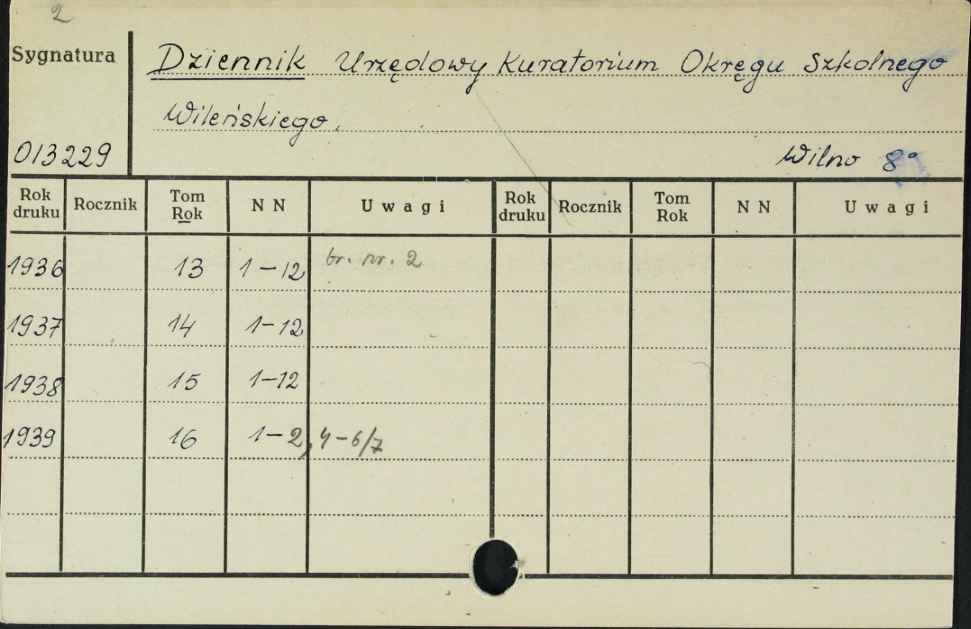 2
Sygnatura
Dziennik Urzędowy Kuratorium Okręgu Szkolnego
Wileńskiego.
013229
Wilno 8°
Rok druku Rocznik Tom Rok N N Uwagi Rok druku Rocznik Tom Rok N N Uwagi
1936 13 1-12 br. nr. 2
1937 14 1-12
1938 15 1-12
1939 16 1-2, 4-6/7